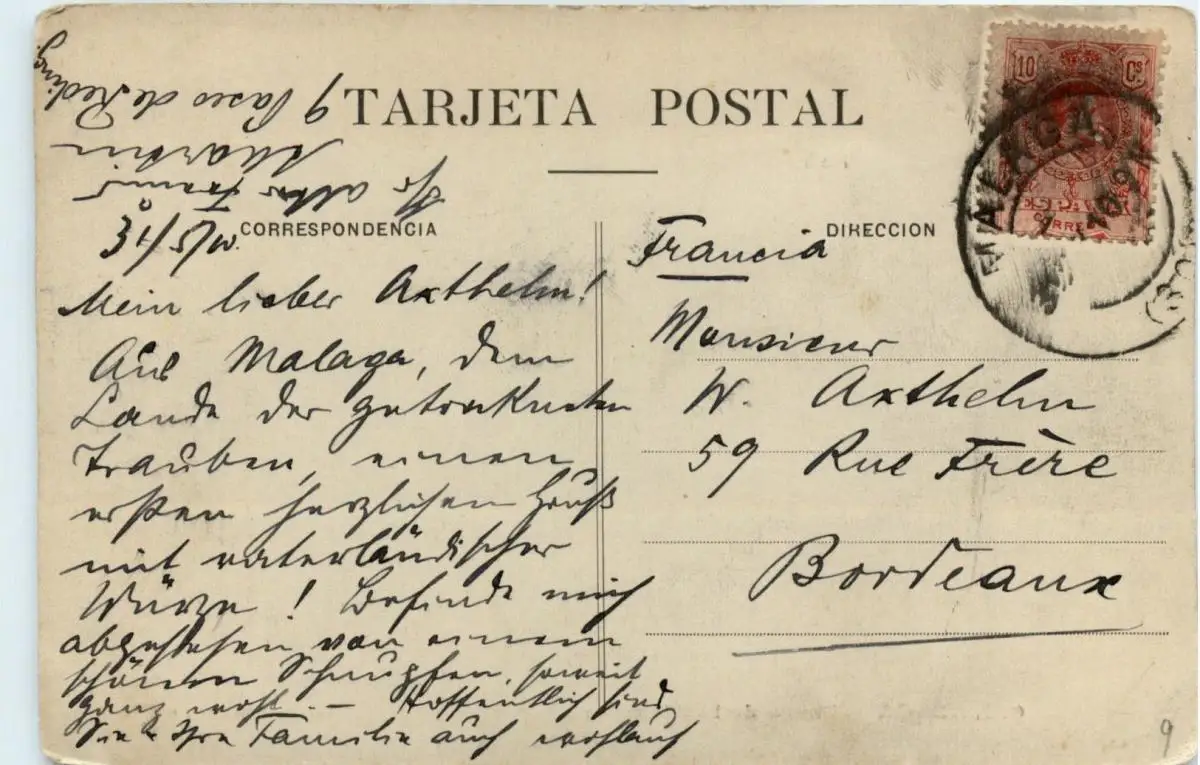 TARJETA POSTAL
CORRESPONDENCIA
DIRECCION
10 Cs
ESPAÑA
CORREOS
MALAGA
31/5/10.
Mein lieber Axthelm!
Aus Malaga, dem
Lande der getrockneten
Trauben, einen
ersten herzlichen Gruß
mit vaterländischer
Würze! Befinde mich
abgesehen von einem
schönen Schnupfen, soweit
ganz wohl. — Hoffentlich sind
Sie & Ihre Familie auch wohlauf
Ihr alter Freund
Martin
9 Paseo de Reding.
Francia
Monsieur
W. Axthelm
59 Rue Frère
Bordeaux
9